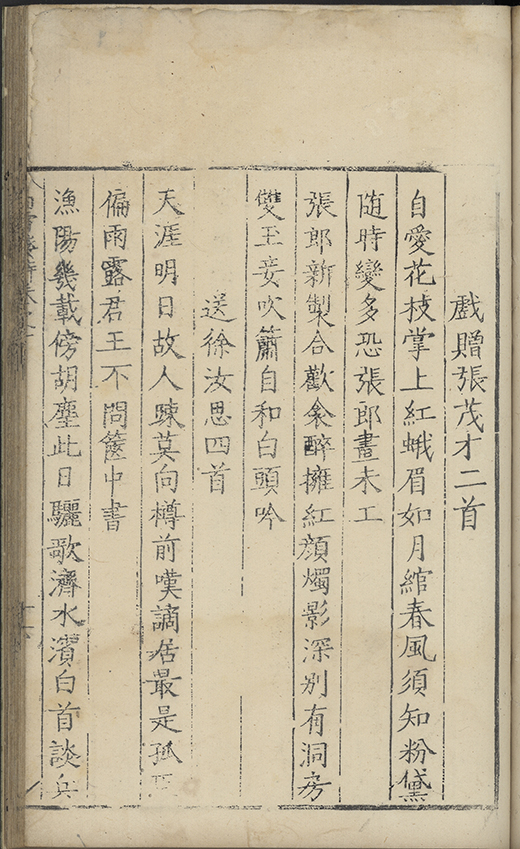 戲贈張茂才二首
自愛花枝掌上紅蛾眉如月綰春風須知粉黛
随時變多恐張郎畫未工
張郎新製合歡衾醉擁紅顔燭影深别有洞房
雙玉妾吹簫自和白頭吟
送徐汝思四首
天涯明日故人踈莫向樽前嘆謫居最是孤臣
偏雨露君王不問篋中書
漁陽幾載傍胡塵此日驪歌濟水濱白首談兵